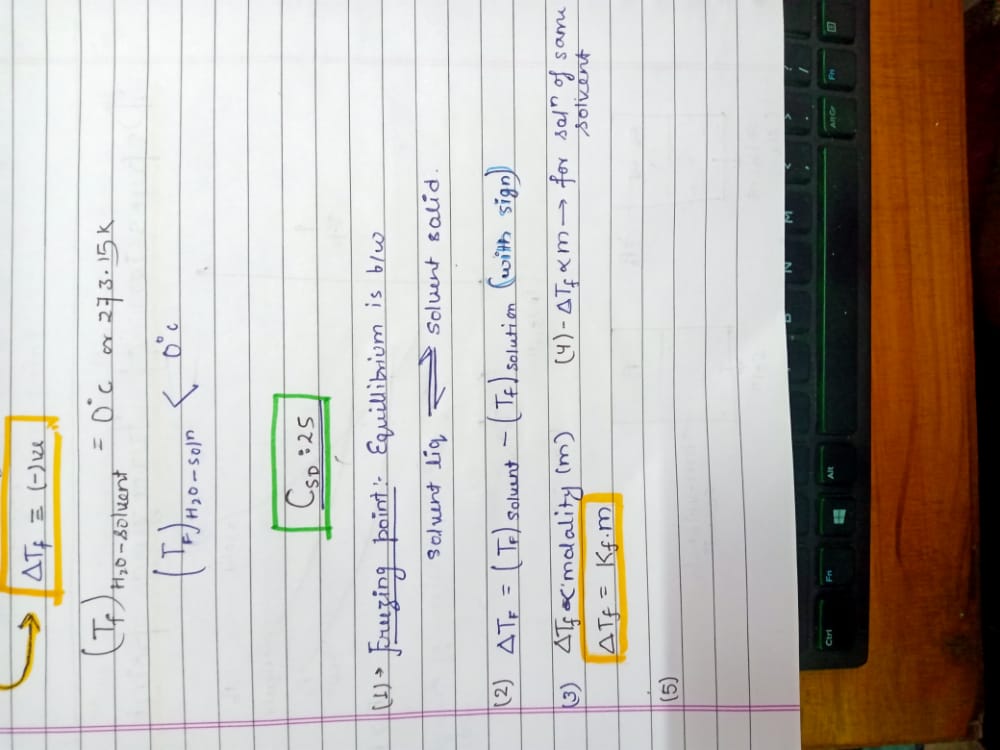 ΔTf = (-)ve
(Tf) H2O-solvent = 0°C or 273.15K
(TF) H2O-solⁿ < 0°C
CSD:25
(1)→ freezing point:- Equillibrium is b/w
solvent liq ⇌ solvent solid.
(2) ΔTF = (Tf) solvent - (Tf) solution (with sign)
(3) ΔTf ∝ molality (m)
(4)- ΔTf ∝ m → for solⁿ of same
solvent
ΔTf = Kf.m
(5)
Ctrl
Fn
Alt
B
N
M
<
,
>
.
?
/
Alt Gr
Fn